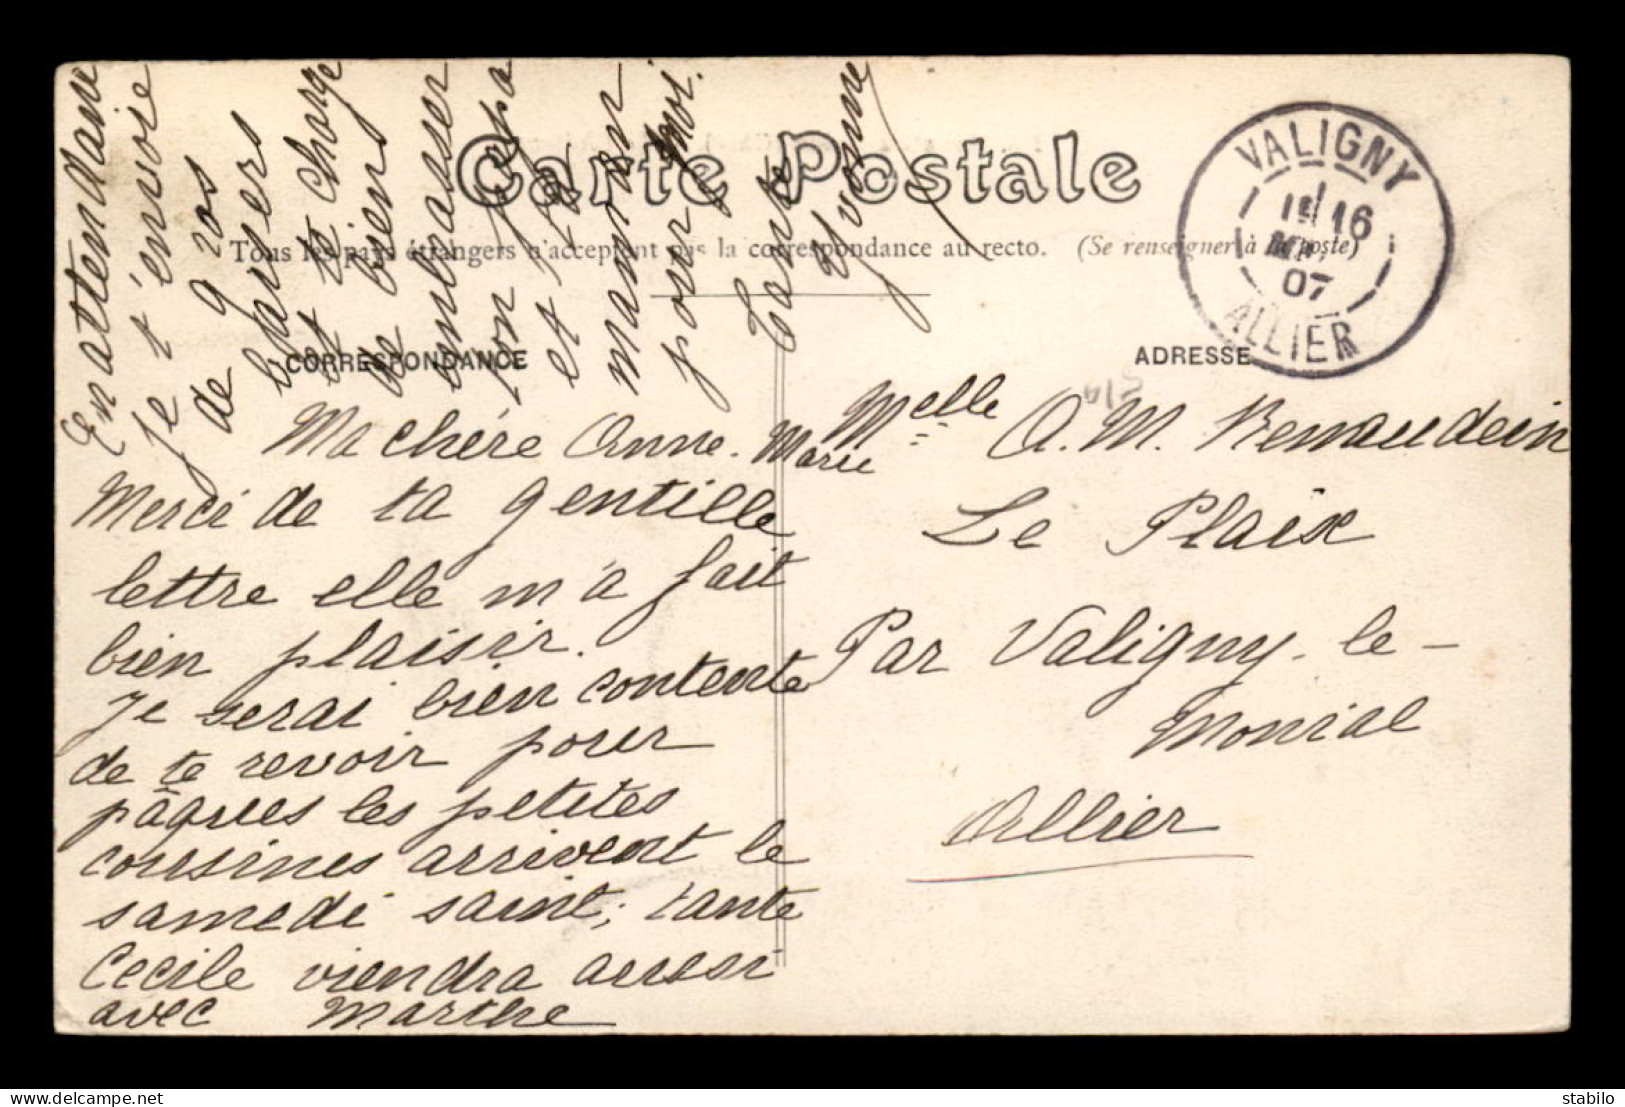 Carte Postale
Tous les pays étrangers n'acceptent pas la correspondance au recto. (Se renseigner à la poste)
CORRESPONDANCE
ADRESSE
VALIGNY
16
07
ALLIER
Ma chère Anne-Marie
Merci de ta gentille
lettre elle m'a fait
bien plaisir.
Je serai bien contente
de te revoir pour
pâques les petites
cousines arrivent le
samedi saint; tante
Cecile viendra aussi
avec Marthe
En attendant
je t'envoie
de gros
baisers
et te charge
de bien
embrasser
ton papa
et ta
maman
pour moi.
Tante
Yvonne
Melle A. M. Renaudein
Le Plaix
Par Valigny-le-
Monial
Allier
delcampe.net
stabilo